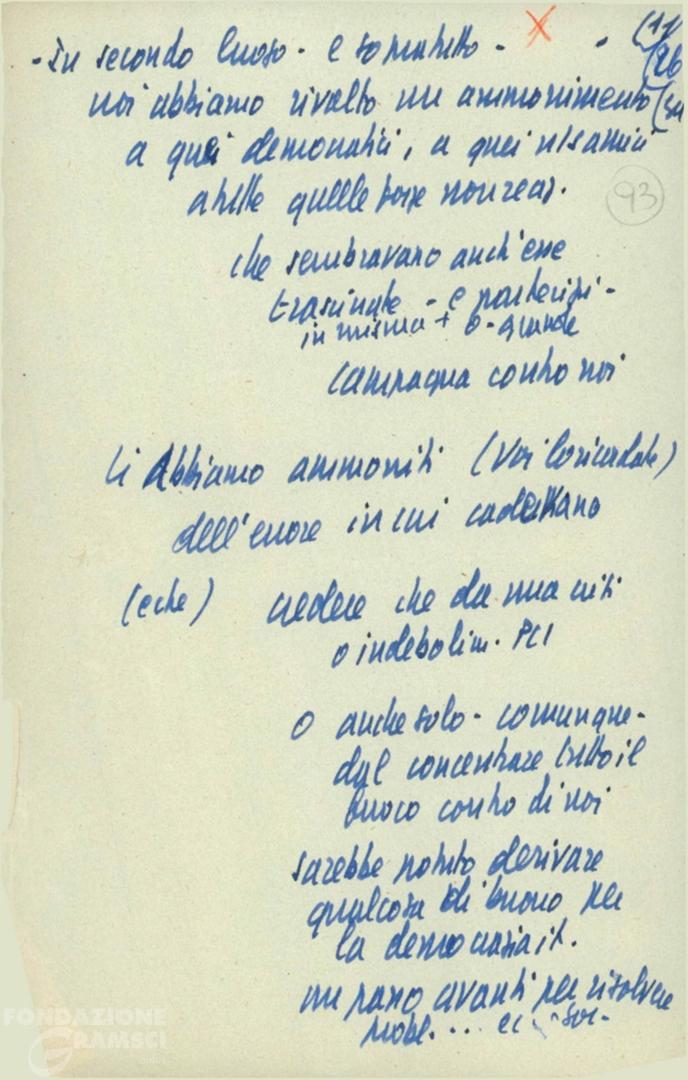 - In secondo luogo - e soprattutto -
noi abbiamo rivolto un ammonimento
a quei democratici, a quei
a quelle forze
93
che sembravano anch'esse
trascinate - e partecipi -
in misura + o - grande
campagna contro noi
Li Abbiamo ammoniti (voi lo ricordate)
dell'errore in cui cadevano
(e che) credere che da una crisi
o indebolim. PCI
O anche solo - comunque -
dal concentrare tutto il
fuoco contro di noi
sarebbe potuto derivare
qualcosa di buono per
la democrazia it.
un passo avanti per risolvere
probl. ...
FONDAZIONE
GRAMSCI